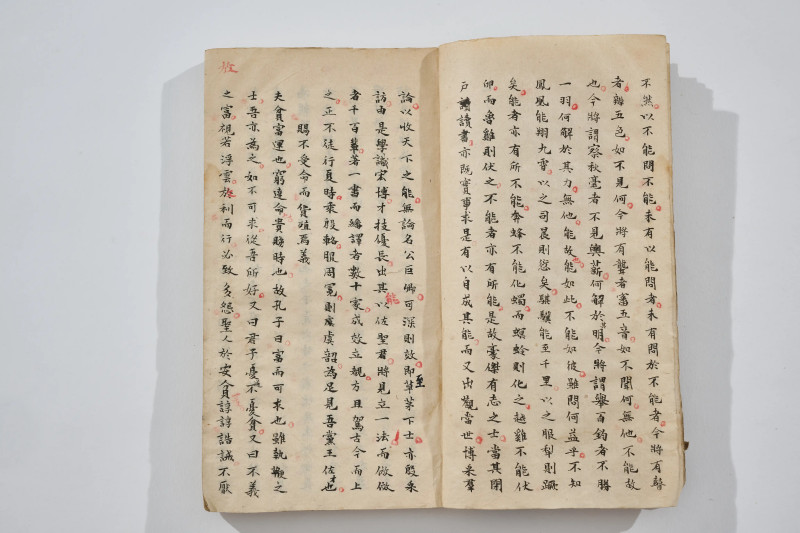 不然以不能問不能未有以能問者未有問於不能者今將有瞽
者辨五色如不見何今將有聾者審五音如不聞何無他不能故
也今將謂察秋毫者不見輿薪何解於明今將謂舉百鈞者不勝
一羽何解於其力無他能故能如此不能如彼雖問何益乎不知
鳳凰能翔九霄以之司晨則愆矣騏驥能至千里以之服犁則蹶
矣能者亦有所不能奔蜂不能化蠋而螟蛉則化之越雞不能伏
卵而魯雞則伏之不能者亦有所能是故豪傑有志之士當其閉
戶讀書亦既實事求是有以自成其能而又出觀當世博采羣
論以收天下之能無論名公巨卿可深則效即至草茅下士亦殷采
訪由是學識宏博才技優長出其能以佐聖君將見立一法而倣倣
者千百輩著一書而繙譯者數十家成效立覩方且駕古今而上
之正不徒行夏時乘殷輅服周冕則虞韶為足見吾黨王佐才也
賜不受命而貨殖焉義
夫貧富運也窮達命貴賤時也故孔子曰富而可求也雖執鞭之
士吾亦為之如不可求從吾所好又曰君子憂道不憂貧又曰不義
之富視若浮雲放利而行必致多怨聖人於安貧諄諄誥誡不厭
放